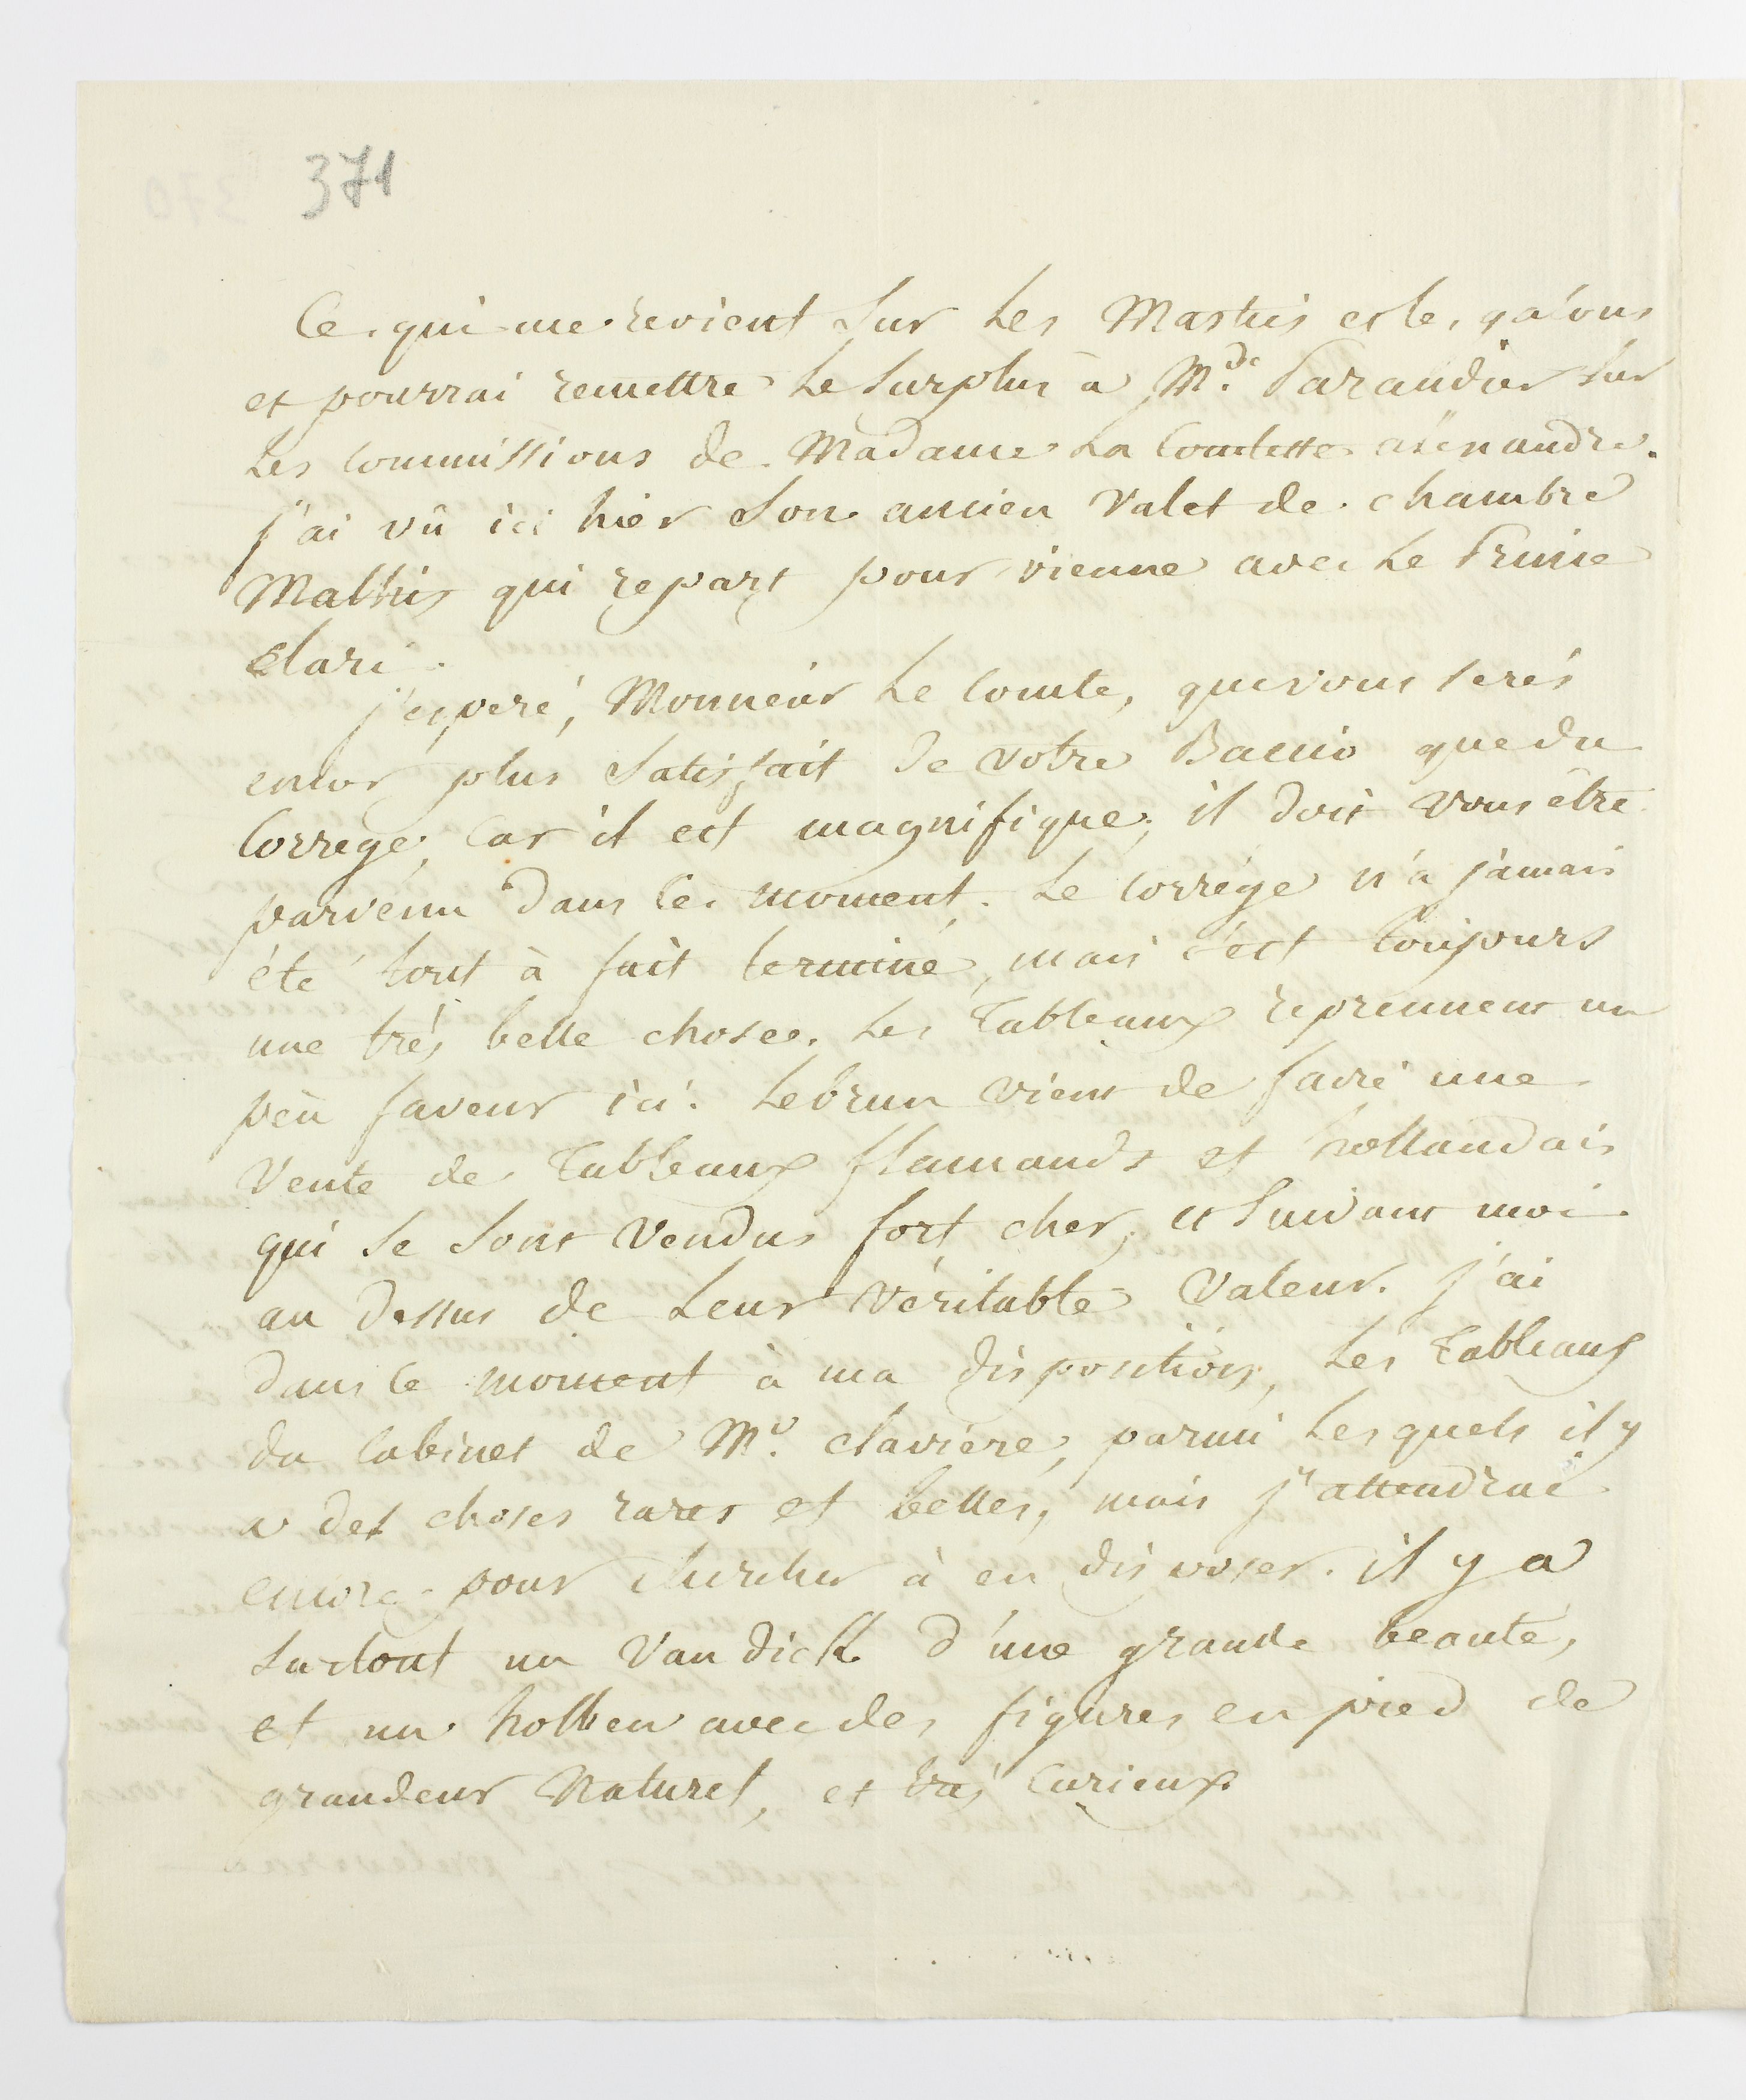 371
Ce qui me revient sur les Mastics et le
et pourrai remettre le surplus à M.de Parandier sur
les commissions de Madame la Comtesse
j'ai vû ici hier son ancien valet de chambre
Mathis qui repart pour vienne avec le Prince
Clari.
j'espere, Monsieur le Comte, que vous serés
encor plus satisfait de votre Baccio que du
Correge, car il est magnifique; il doit vous être
parvenu dans ce moment. Le Corrége n'a jamais
été tout à fait terminé, mais c'est toujours
une très belle chose. les Tableaux reprennent un
peu faveur ici. Lebrun vient de faire une
Vente de Tableaux flamands et hollandais
qui se sont vendus fort cher, et suivant moi
au dessus de leur véritable valeur. j'ai
dans ce moment à ma disposition, les Tableaux
du Cabinet de Mr. claviere, parmi lesquels il y
a des choses rares et belles, mais j'attendrai
encore pour chercher à en disposer. il y a
surtout un Van dick d'une grande beauté,
et un holben avec des figures en pied de
grandeur Naturel, et très Curieux